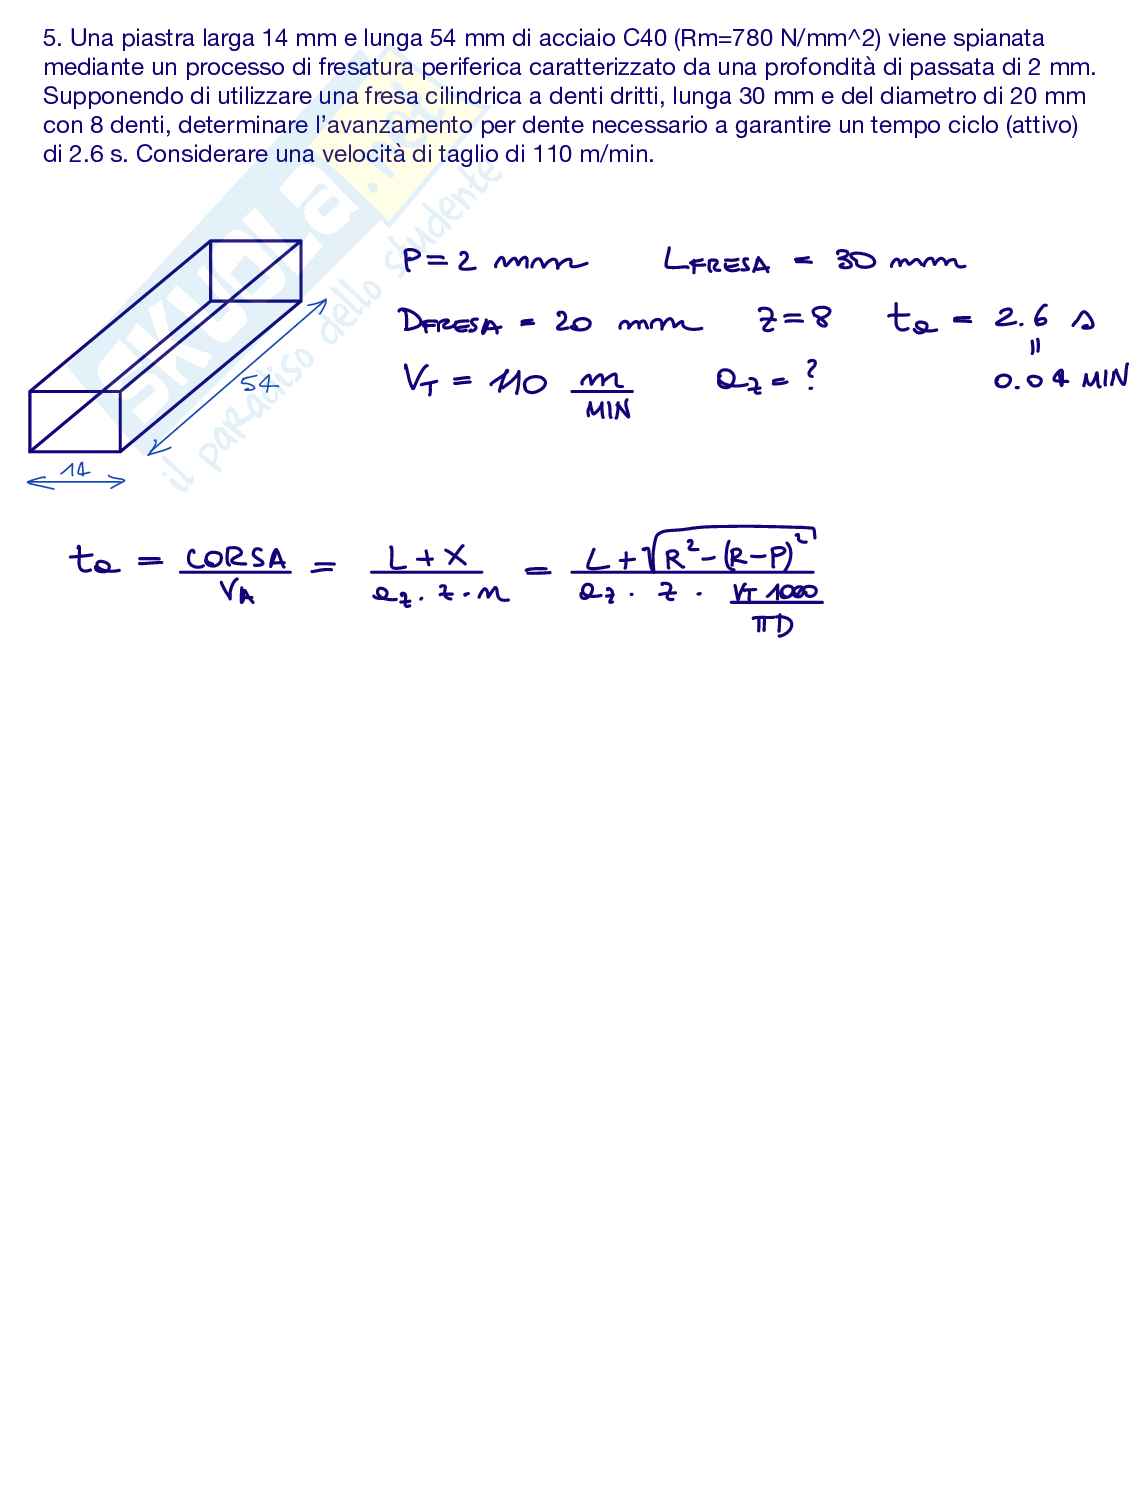 5. Una piastra larga 14 mm e lunga 54 mm di acciaio C40 (Rm=780 N/mm^2) viene spianata
mediante un processo di fresatura periferica caratterizzato da una profondità di passata di 2 mm.
Supponendo di utilizzare una fresa cilindrica a denti dritti, lunga 30 mm e del diametro di 20 mm
con 8 denti, determinare l'avanzamento per dente necessario a garantire un tempo ciclo (attivo)
di 2.6 s. Considerare una velocità di taglio di 110 m/min.
SKUOLA.net
il paradiso dello studente
P = 2 mm L_FRESA = 30 mm
D_FRESA = 20 mm z = 8 ta = 2.6 s
=
V_T = 110 m/MIN az = ? 0.04 MIN
54
14
ta = CORSA/V_A = (L + X)/(az · z · n) = (L + √(R² - (R - P)²))/(az · z · (V_T 1000)/(πD))